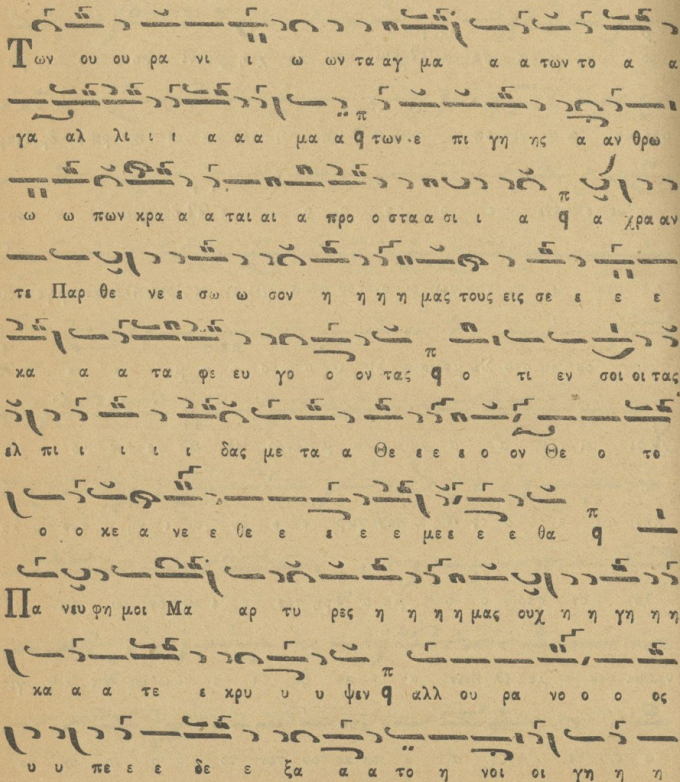 Των ου ου ρα νι ι ω ων τα αγ μα α α των το α α
γα αλ λι ι ι α α α μα α q των ε πι γη ης α αν θρω
ω ω πων κρα α α ται αι α προ ο στα α σι ι α q α χρα αν
τε Παρ θε νε ε σω ω σον η η η η μας τους εις σε ε ε ε
κα α α τα φε ευ γο ο ον τας q ο τι εν σοι οι τας
ελ πι ι ι ι ι δας με τα α Θε ε ε ε ο ον Θε ο το
ο ο κε α νε ε θε ε ε ε ε με ε ε ε ε θα q
Πα νευ φη μοι Μα αρ τυ ρες η η η η μας ουχ η η γη η η
κα α α τε ε κρυ υ υ ψεν q αλλ ου ρα νο ο ο ος
υ υ πε ε ε δε ε ξα α α το η νοι οι γη η η